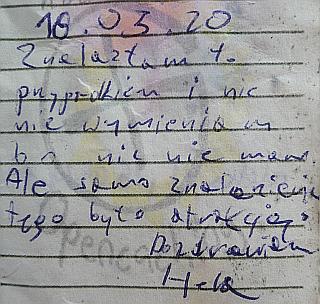 18.03.20
Znalazłam to
przypadkiem i nic
nie wymieniam
bo nic nie mam.
Ale samo znalezienie
tego było atrakcją.
Pozdrawiam
Hela